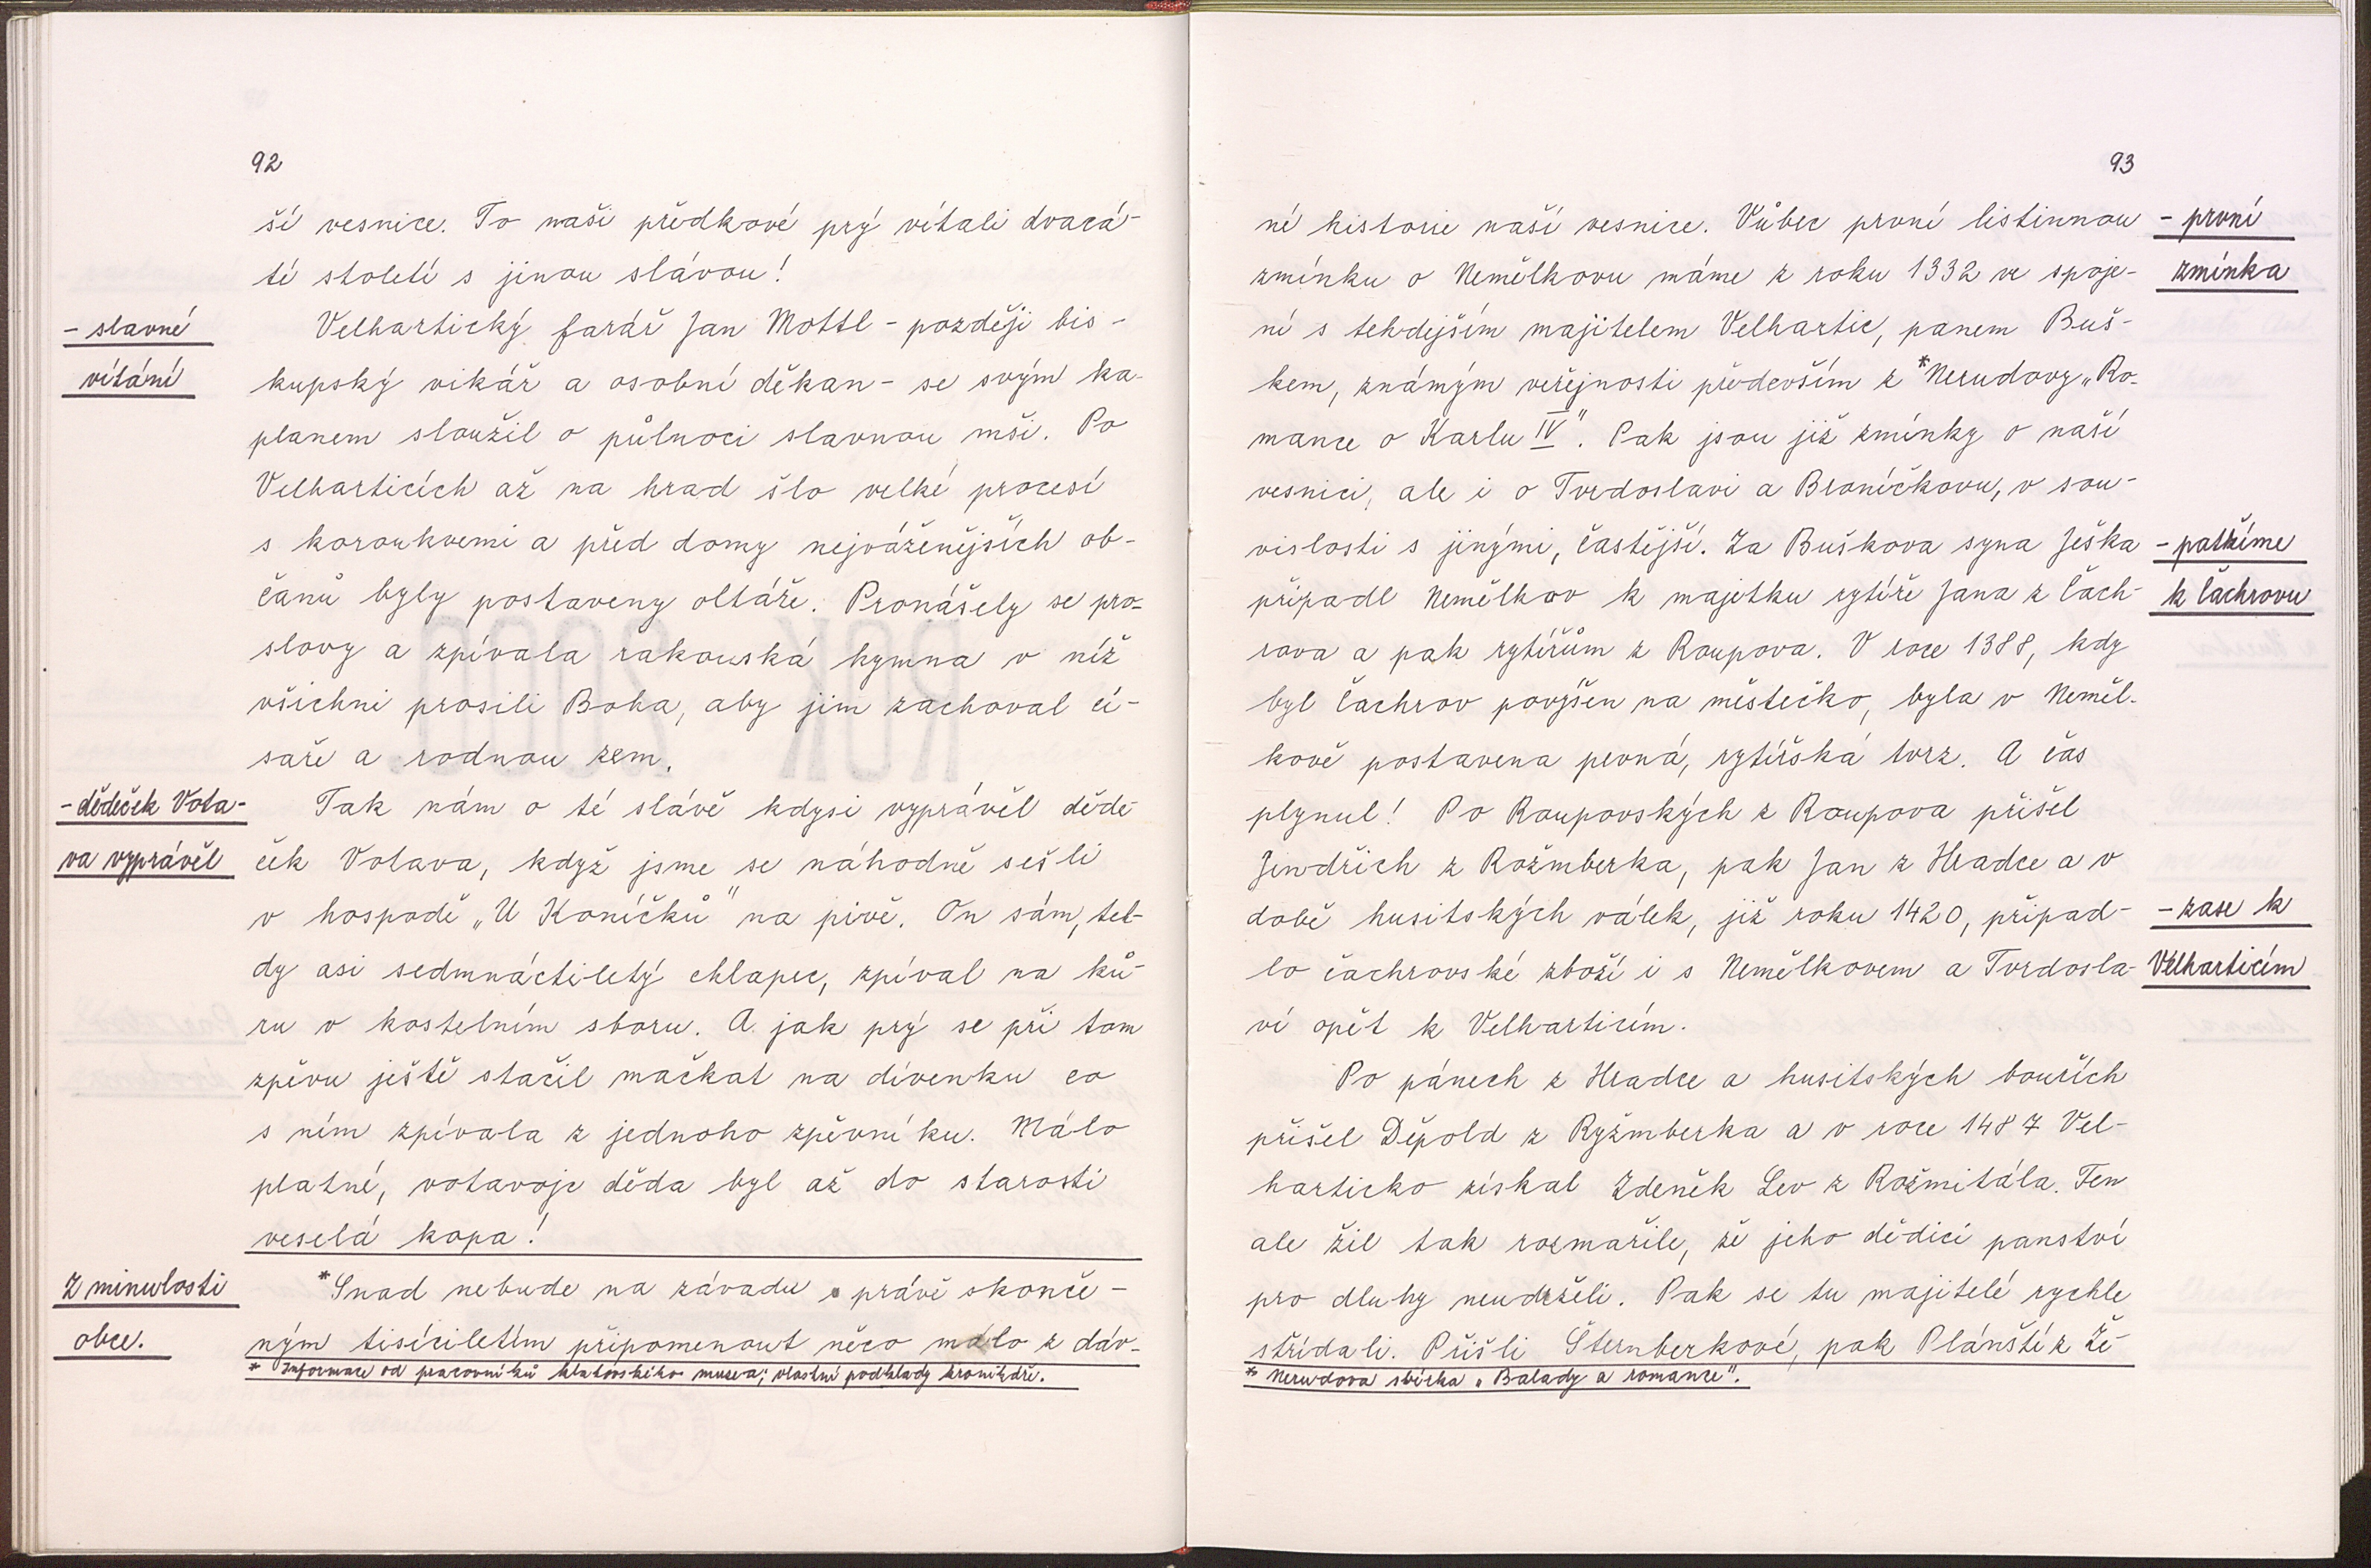 92
ší vesnice. To naši předkové prý vítali dvacá-
té století s jinou slávou!
- slavné
vítání
Velhartický farář Jan Mottl - později bis-
kupský vikář a osobní děkan - se svým ka-
planem sloužil o půlnoci slavnou mši. Po
Velharticích až na hrad šlo velké procesí
s korouhvemi a před domy nejváženějších ob-
čanů byly postaveny oltáře. Pronášely se pro-
slovy a zpívala rakouská hymna v níž
všichni prosili Boha, aby jim zachoval cí-
saře a rodnou zem.
- dědeček Vota-
va vyprávěl
Tak nám o té slávě kdysi vyprávělděde
ček Votava, když jsme se náhodně sešli
v hospodě „U Koníčků" na pivě. On sám, teh-
dy asi sedmnáctiletý chlapec, zpíval na ků-
ru v kostelním sboru. A jak prý se při tom
zpěvu ještě stačil mačkat na dívenku co
s ním zpívala z jednoho zpěvníku. Málo
platné, votavojc děda byl až do starosti
veselá kopa!
Z minulosti
obce.
*Snad nebude na závadu s právě skonče-
ným tisíciletím připomenout něco málo z dáv-
* Informace od pracovníků klatovského muzea; vlastní podklady kronikáře.
93
né historie naší vesnice. Vůbec první listinnou
zmínku o Nemilkovu máme z roku 1332 ve spoje-
ní s tehdejším majitelem Velhartic, panem Buš-
kem, známým veřejnosti především z *Nerudovy „Ro-
mance o Karlu IV". Pak jsou již zmínky o naší
vesnici, ale i o Tvrdoslavi a Braníčkovu, v sou-
vislosti s jinými, častější. Za Buškova syna Ješka
připadl Nemělkov k majetku rytíře Jana z Čach-
rova a pak rytířům z Roupova. V roce 1388, kdy
byl Čachrov povýšen na městečko, byla v Neměl-
kově postavena pevná, rytířská tvrz. A čas
plynul! Po Roupovských z Roupova přišel
Jindřich z Rožmberka, pak Jan z Hradce a v
době husitských válek, již roku 1420, připad-
lo čachrovské zboží i s Nemělkovem a Tvrdosla-
ví opět k Velharticím.
Po pánech z Hradce a husitských bouřích
přišel Děpold z Ryžmberka a v roce 1487 Vel-
harticko získal Zdeněk Lev z Rožmitála. Ten
ale žil tak rozmařile, že jeho dědici panství
pro dluhy neudrželi. Pak se tu majitelé rychle
střídali. Přišli Šternberkové, pak Plánští z Že-
* Nerudova sbírka „Balady a romance".
- první
zmínka
- patříme
k Čachrovu
- zase k
Velharticím